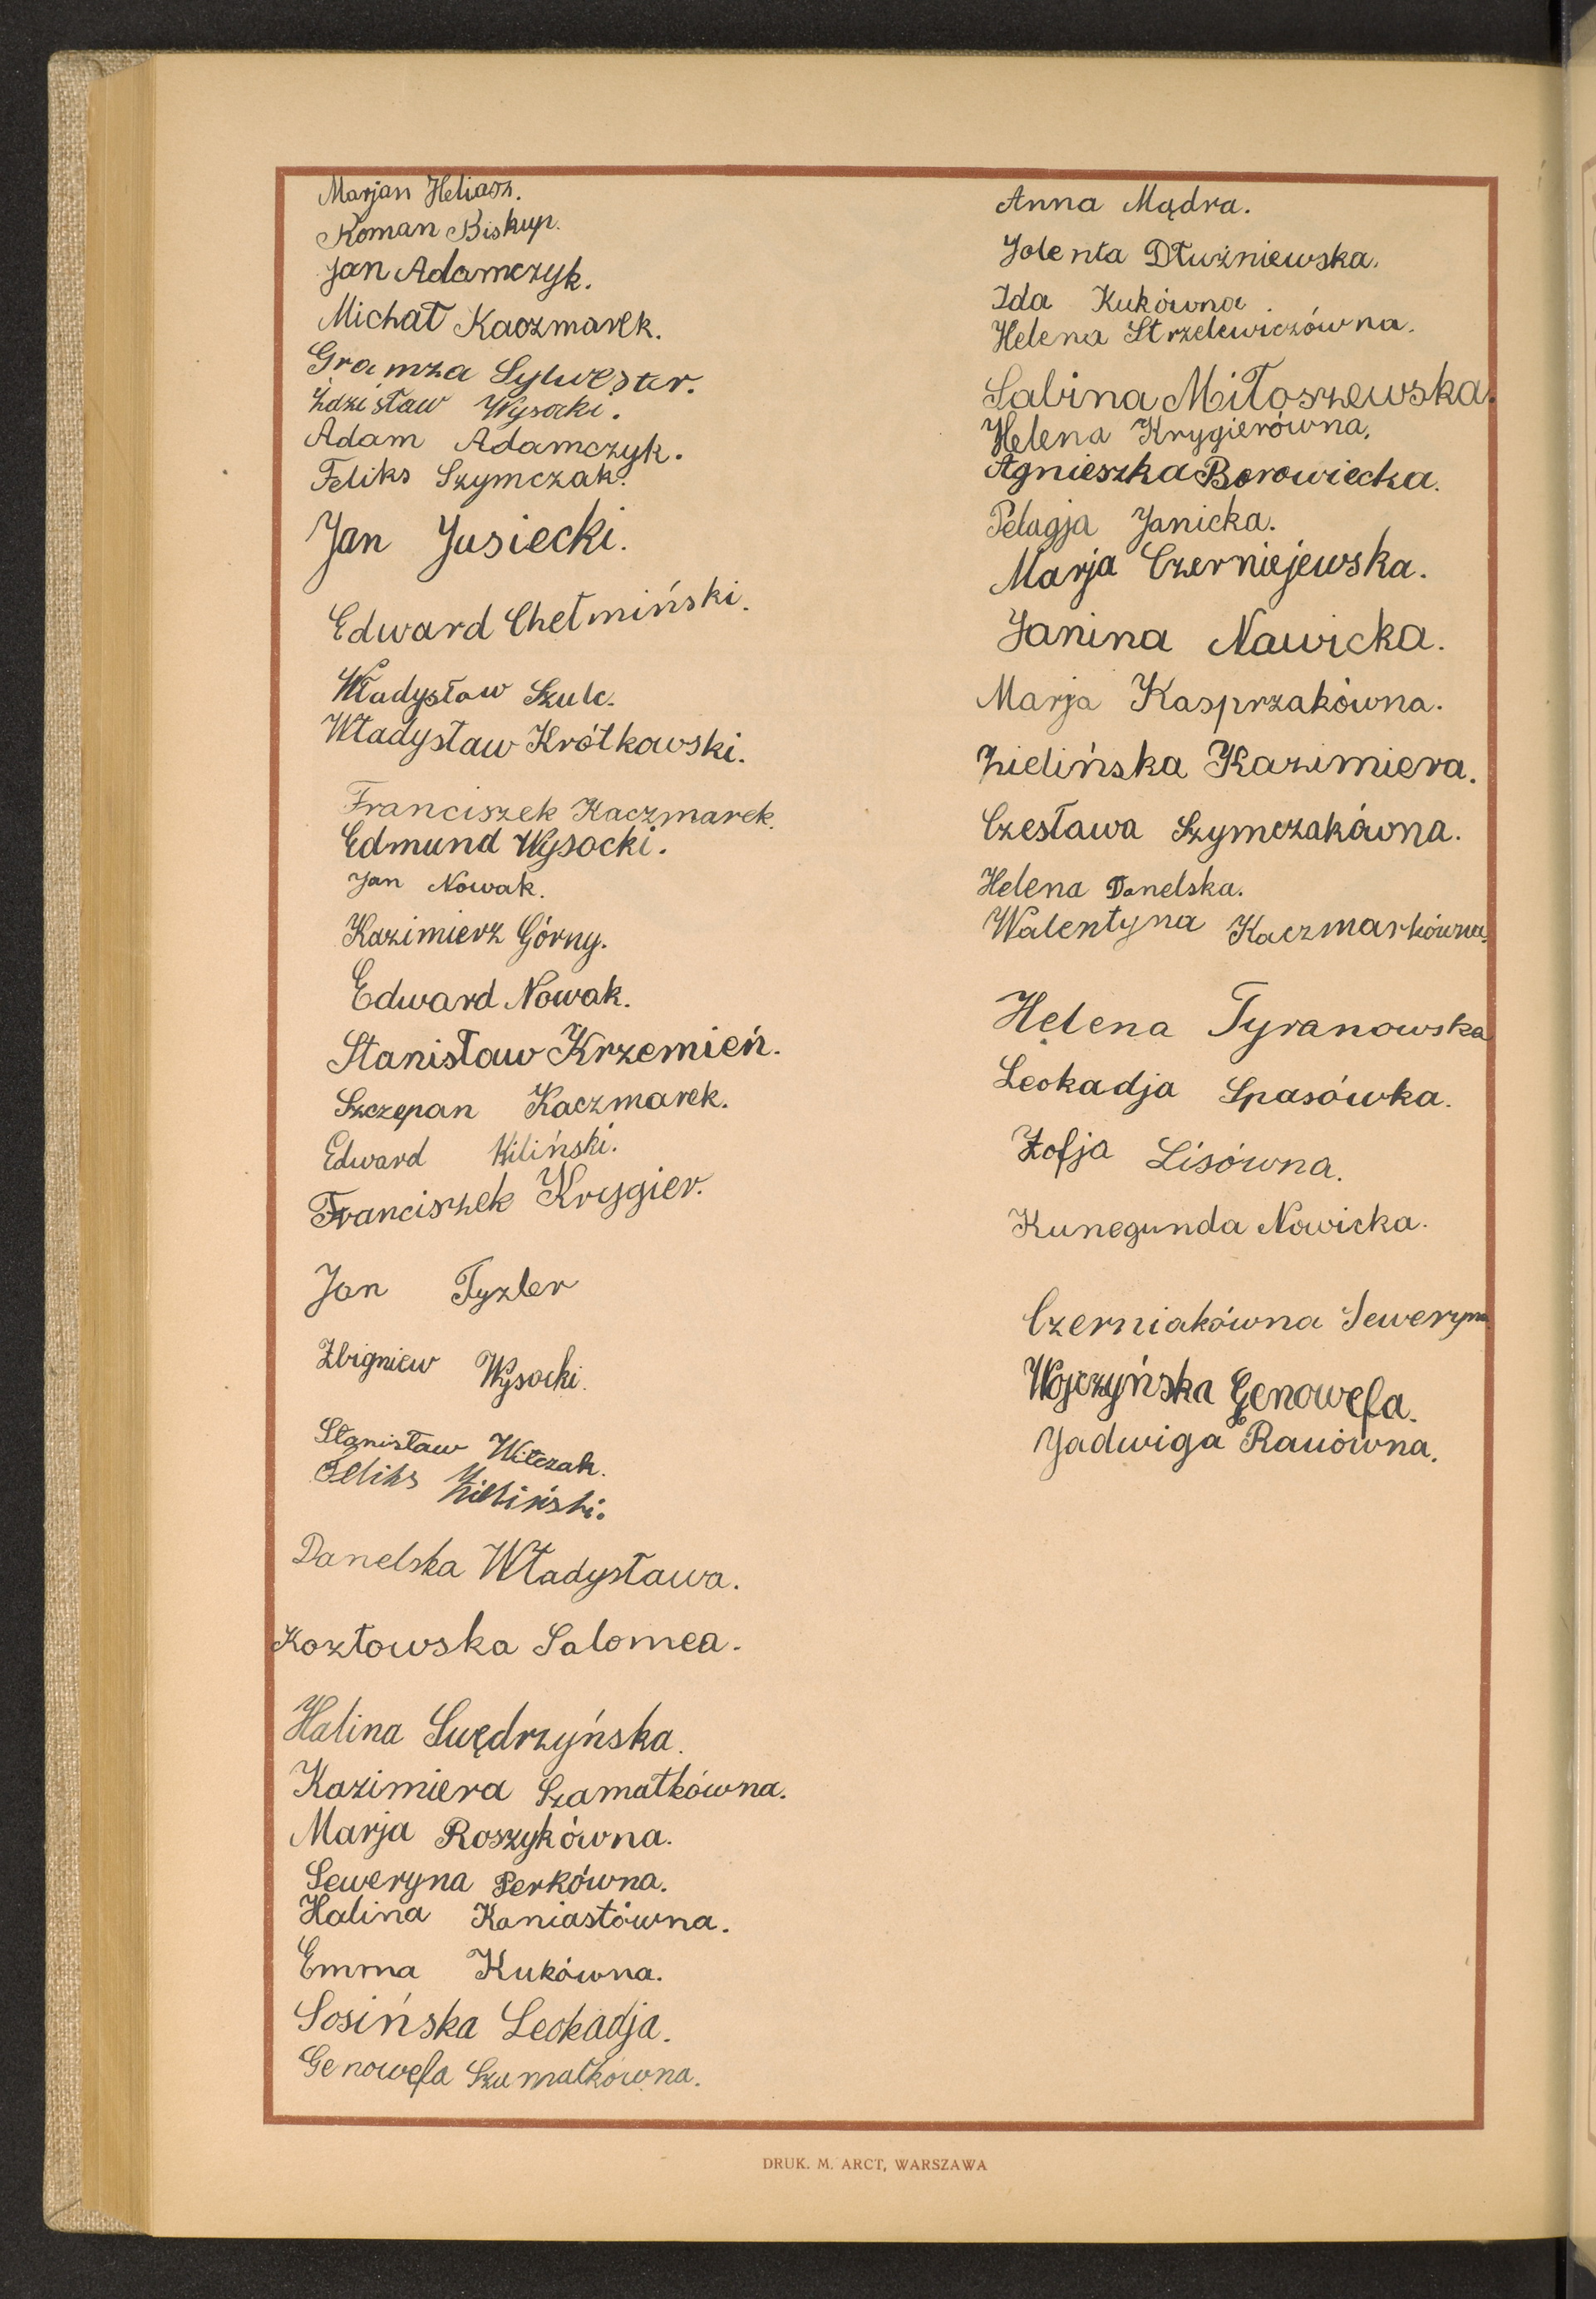 Marjan Heliasz.
Roman Biskup.
Jan Adamczyk.
Michał Kaczmarek.
Gramza Sylwester.
Zdzisław Wysocki.
Adam Adamczyk.
Feliks Szymczak.
Jan Jusiecki.
Edward Chełmiński.
Władysław Szulc.
Władysław Krótkowski.
Franciszek Kaczmarek.
Edmund Wysocki.
Jan Nowak.
Kazimierz Górny.
Edward Nowak.
Stanisław Krzemień.
Szczepan Kaczmarek.
Edward Kiliński.
Franciszek Krygier.
Jan Tyzler
Zbigniew Wysocki.
Stanisław Witczak.
Feliks Zieliński.
Danelska Władysława.
Kozłowska Salomea.
Halina Swędrzyńska.
Kazimiera Szamałkówna.
Marja Roszykówna.
Seweryna Perkówna.
Halina Koniastówna.
Emma Kukówna.
Sosińska Leokadja.
Genowefa Szumałkówna.
Anna Mądra.
Jolenta Dłużniewska.
Ida Kukówna
Helena Strzelewiczówna.
Sabina Miłoszewska.
Helena Krygierówna.
Agnieszka Borowiecka.
Pelagja Janicka.
Marja Czerniejewska.
Janina Nawicka.
Marja Kasprzakówna.
Zielińska Kazimiera.
Czesława Szymczakówna.
Helena Danelska.
Walentyna Kaczmarkówna.
Helena Tyranowska
Leokadja Spasówka.
Zofja Lisówna.
Kunegunda Nowicka.
Czerniakówna Seweryna.
Wojczyńska Genowefa.
Jadwiga Rauówna.
DRUK. M. ARCT, WARSZAWA